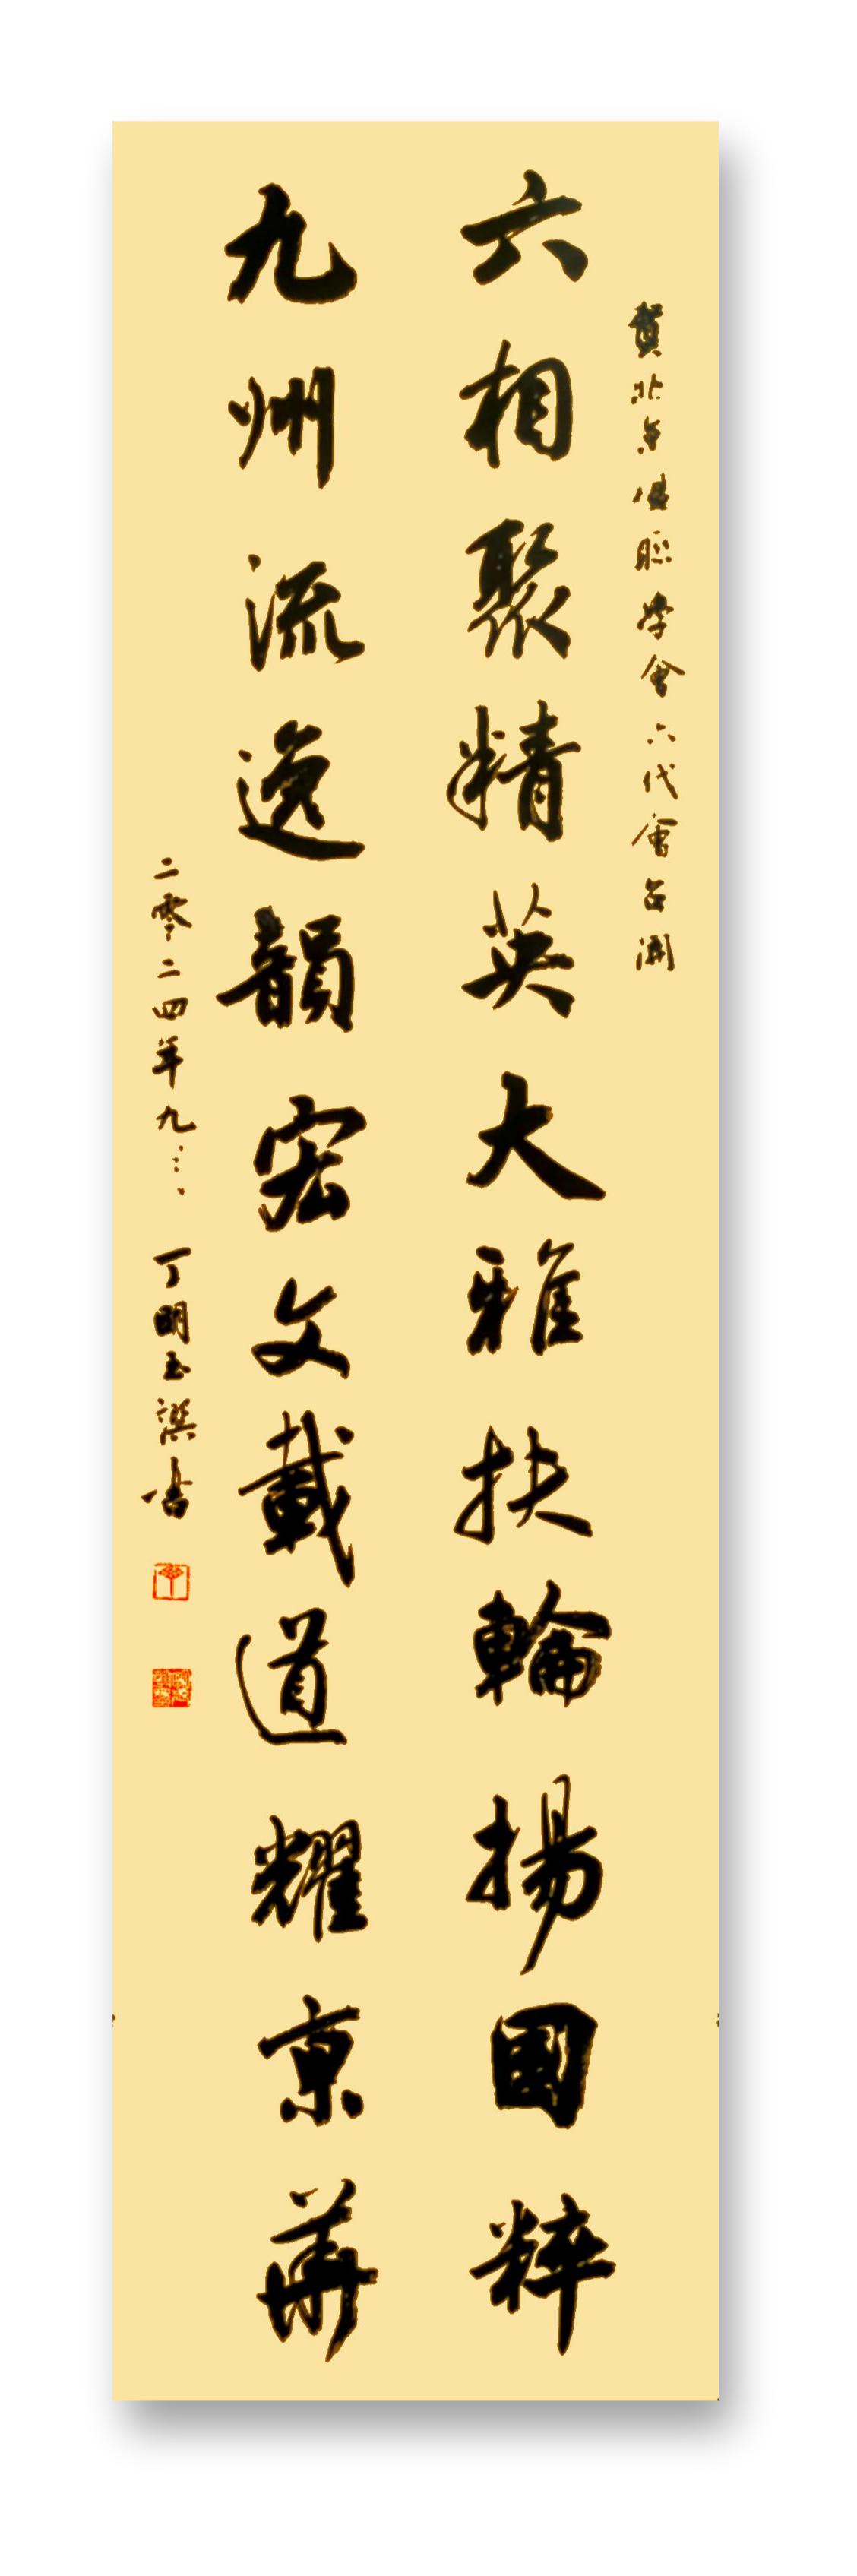 賀北京楹聯学會六代會召開
六相聚精英大雅扶輪揚國粹
九州流逸韻宏文載道耀京華
二零二四年九 丁明玉撰書